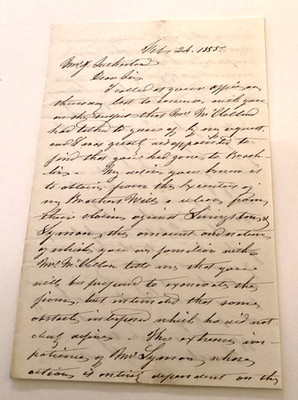 Feby 24. 1855.
Dear Sir,
I called at your office on
thursday last to converse with you
on the subject that Mr. McClellan
had talked to you of by my request
and I was greatly disappointed to
find that you had gone to
My wishes you know is
to obtain from the Executors of
my Brothers Will a release from
their claims against Livingston &
Lyman, the amount and nature
of which you are familiar with
Mr. McClellan tells me that you
will be prepared to
but intimated that some
obstacle interposed which he did not
clearly define. The extreme im-
patience of Mr. Lyman, whose
action is entirely dependent on the